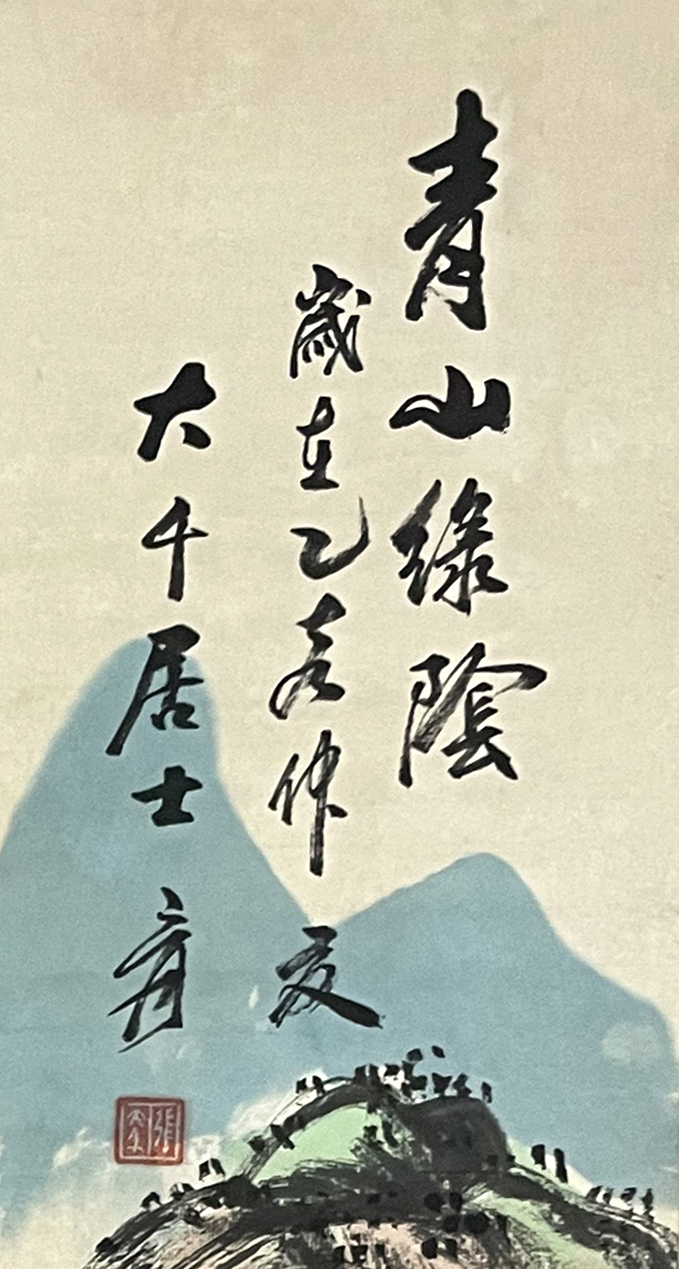 青山綠陰
歲在乙亥仲夏
大千居士爰